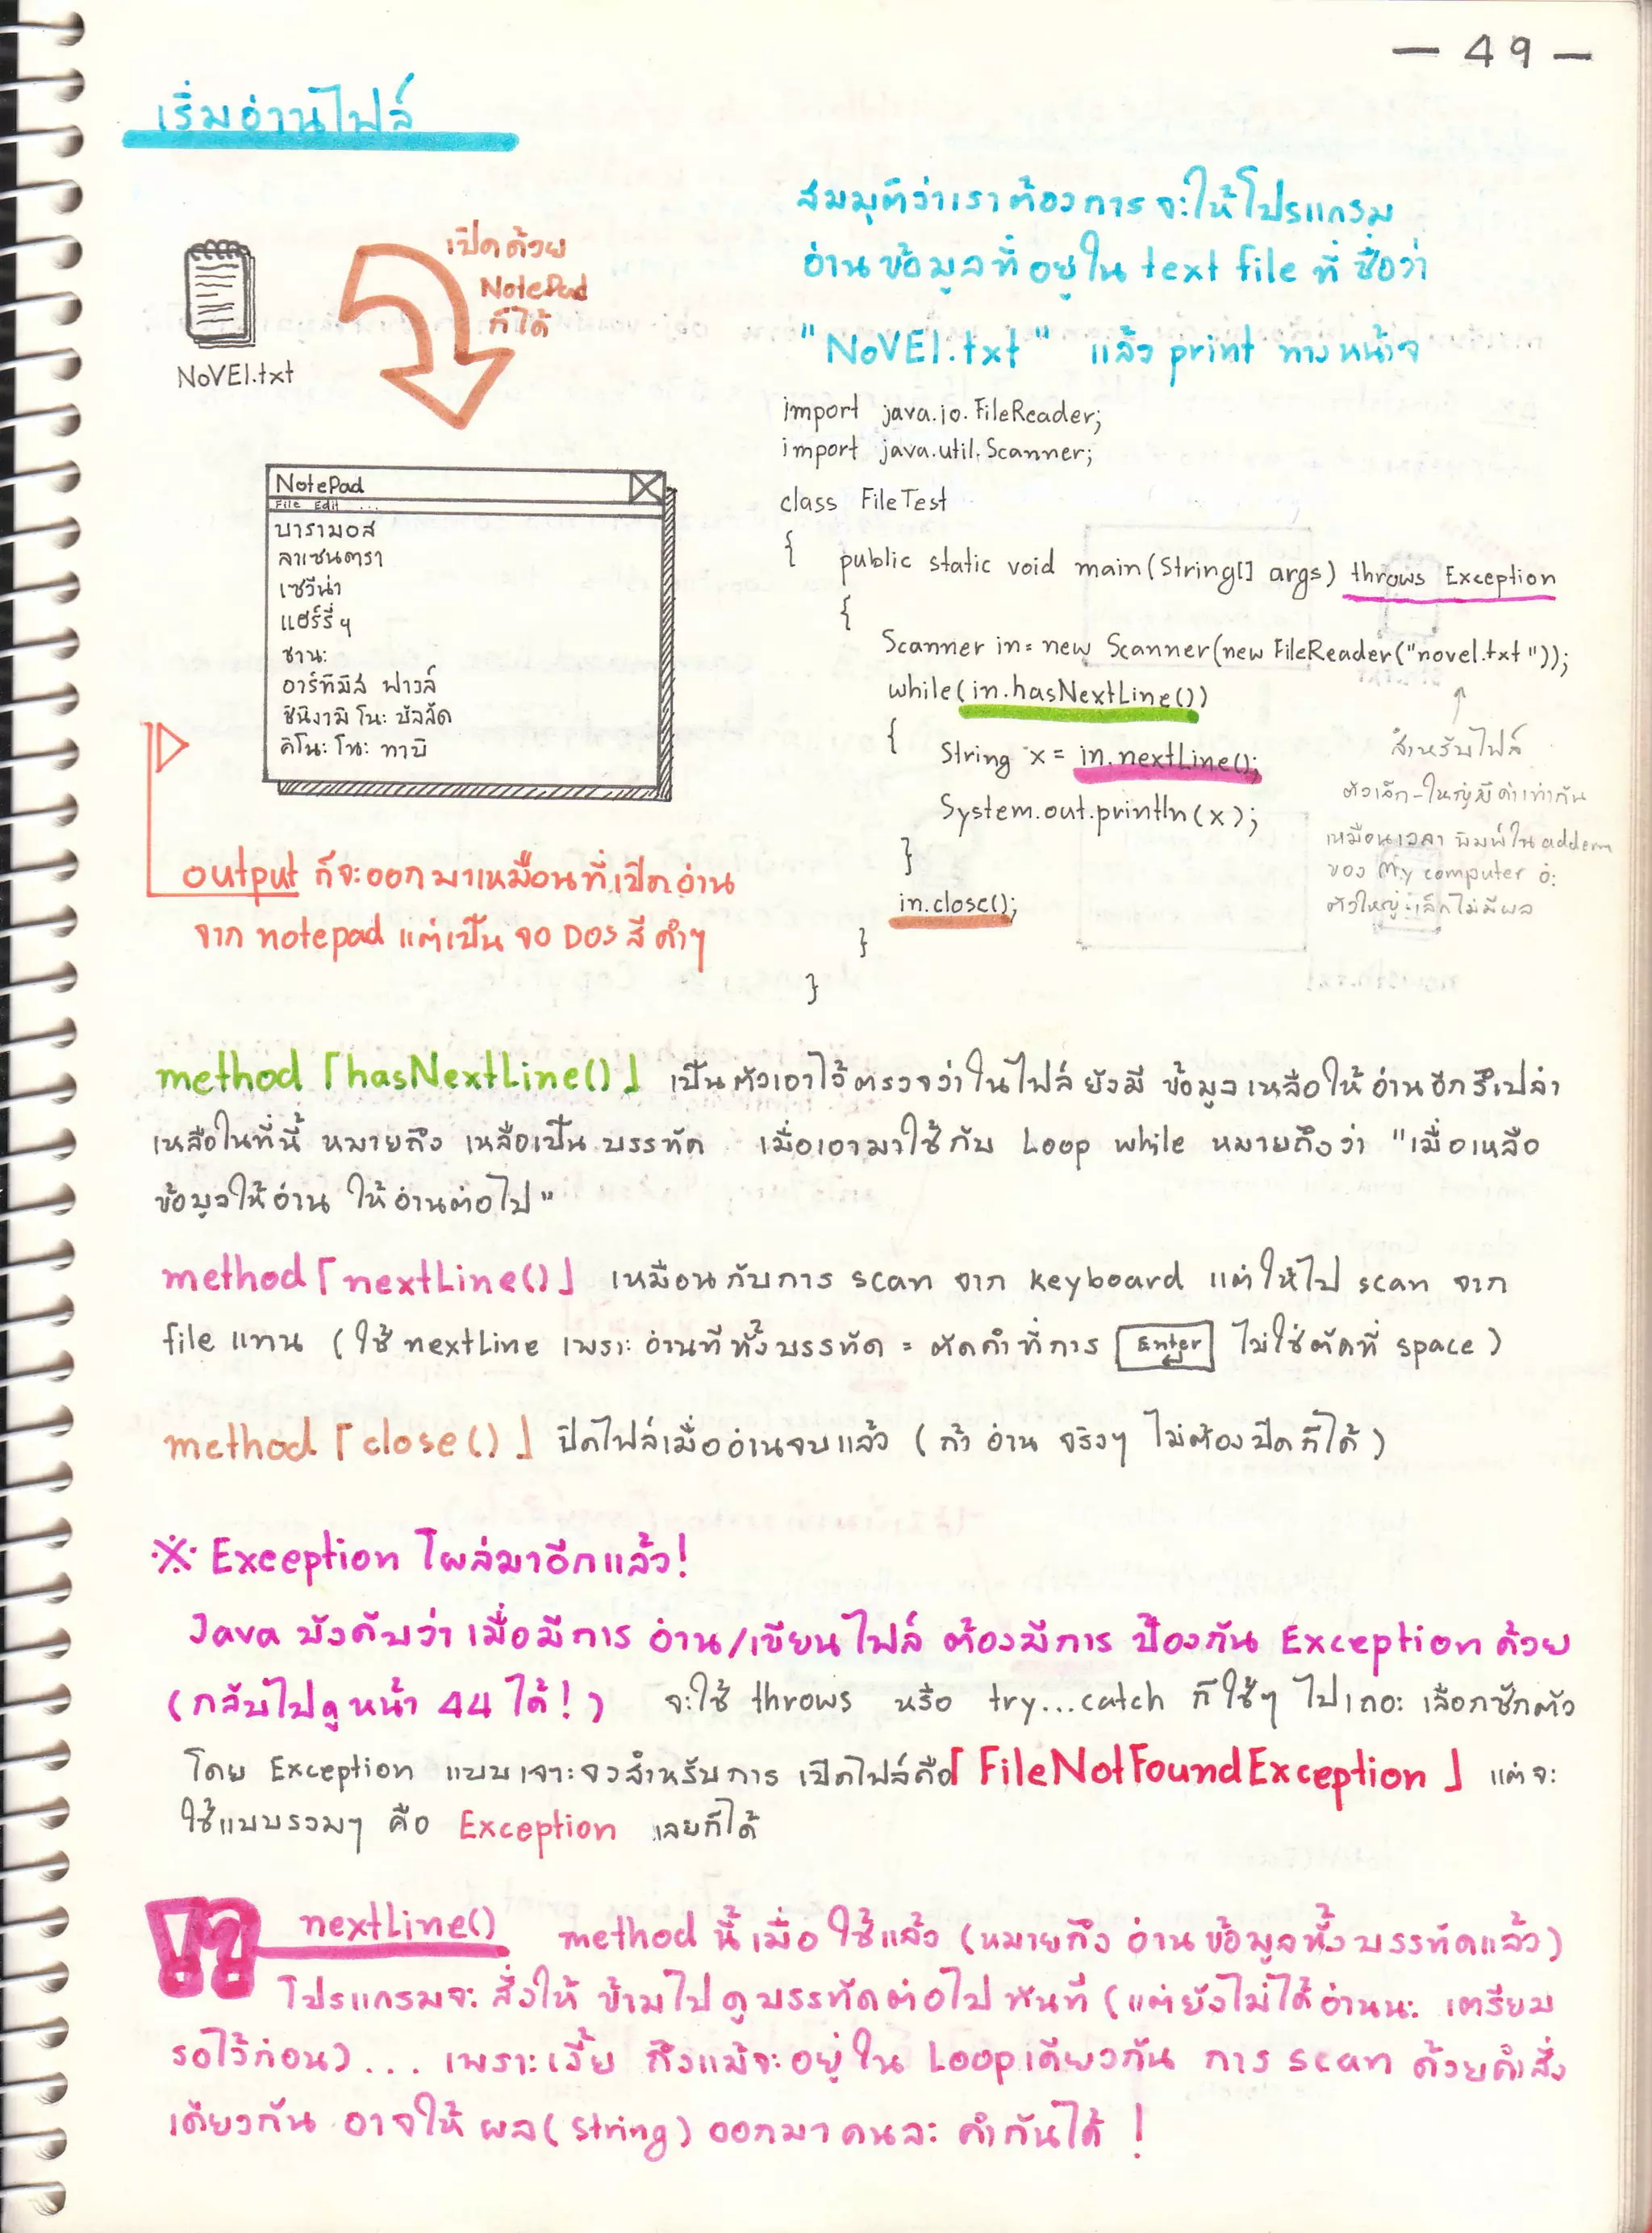 — 49 —
เริ่มอ่านไฟล์
สมมุติว่าเราต้องการจะให้โปรแกรม
อ่านข้อมูลที่อยู่ใน text file ที่ชื่อว่า
"NoVEl.txt" แล้ว print ทางหน้าจ
เปิดด้วย
NotePad
ก็ได้
NoVEl.txt
NotePad
File Edit ...
บารามอส
ลาเซนตรา
เซวีน่า
แฮร์รี่ ๆ
ซานะ
อาร์ทิมิส ฟาวล์
ชินิงามิ โนะ บัลลัด
คิโนะ โนะ ทาบิ
output ก็จะออกมาเหมือนที่เปิดอ่าน
จาก notepad แต่เป็น จอ DOS สีดำๆ
import java.io.FileReader;
import java.util.Scanner;
class FileTest
{
public static void main(String[] args) throws Exception
{
Scanner in = new Scanner(new FileReader("novel.txt"));
while(in.hasNextLine())
{
String x = in.nextLine();
System.out.println(x);
}
in.close();
}
}
สำหรับไฟล์
ตัวเล็ก-ใหญ่มีค่าเท่ากัน
เหมือนเวลา พิมพ์ใน addem
ของ My computer อ่ะ
ตัวใหญ่-เล็กไม่มีผล
method「hasNextLine()」 เป็นตัวเอาไว้ตรวจว่าในไฟล์ ยังมี ข้อมูลเหลือให้อ่านอีกรึเปล่า
เหลือในที่นี้ หมายถึง เหลือเป็นบรรทัด เมื่อเอามาใช้กับ Loop while หมายถึงว่า "เมื่อเหลือ
ข้อมูลให้อ่าน ให้อ่านต่อไป"
method「nextLine()」 เหมือนกับการ scan จาก keyboard แต่ให้ไป scan จาก
file แทน (ใช้ nextLine เพราะ อ่านทีทั้งบรรทัด = ตัดคำที่การ Enter ไม่ใช่ตัดที่ space)
method「close()」 ปิดไฟล์เมื่ออ่านจบแล้ว (ถ้า อ่าน จริงๆ ไม่ต้องปิดก็ได้)
※ Exception โผล่มาอีกแล้ว!
Java บังคับว่า เมื่อมีการ อ่าน/เขียนไฟล์ ต้องมีการ ป้องกัน Exception ด้วย
(กลับไปดูหน้า 44 ได้!) จะใช้ throws หรือ try...catch ก็ใช้ๆ ไปเถอะ เลือกซักตัว
โดย Exception แบบเจาะจงสำหรับการ เปิดไฟล์คือ「FileNotFoundException」 แต่จะ
ใช้แบบรวมๆ คือ Exception เลยก็ได้
!? nextLine() method นี้ เมื่อ ใช้แล้ว (หมายถึง อ่านข้อมูลทั้งบรรทัดแล้ว)
โปรแกรมจะ สั่งให้ ข้ามไป ดูบรรทัดต่อไป ทันที (แต่ยังไม่ได้อ่านนะ เตรียม
รอไว้ก่อน)... เพราะงี้ย ถึงแม้จะอยู่ใน Loop เดียวกัน การ scan ด้วยคำสั่ง
เดียวกัน อาจให้ ผล(string) ออกมาคนละ คำกันได้ !